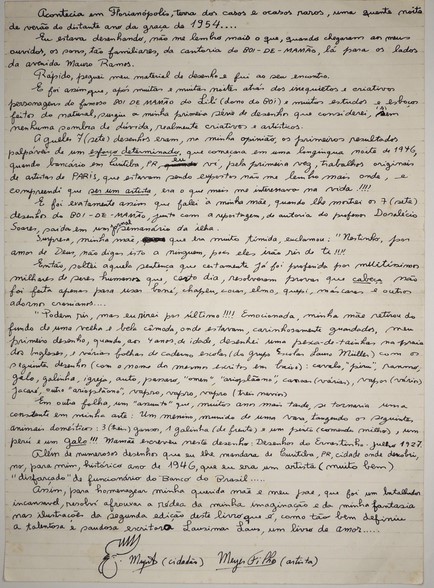 Acontecia em Florianópolis, terra dos casos e ocasos raros, uma quente noite
de verão do distante ano da graça de 1954....
Eu estava desenhando, não me lembro mais o que, quando chegaram aos meus
ouvidos, os sons, tão familiares, da cantoria do BOI-DE-MAMÃO, lá para os lados
da avenida Mauro Ramos.
Rápido, peguei meu material de desenho e fui ao seu encontro.
E foi assim que, após muitas e muitas noites atrás dos irrequietos e criativos
personagens do famoso BOI DE MAMÃO do (dono do BOI) e muitos estudos e esboços
feitos do natural, surgiu a minha primeira série de desenhos que considerei, sem
nenhuma sombra de dúvida, realmente criativos e artísticos.
Aqueles 7 (sete) desenhos eram, na minha opinião, os primeiros resultados
palpáveis de um esforço determinado, que começara em uma longínqua noite de 1946,
quando bancário em Curitiba, PR, eu vi, pela primeira vez, trabalhos originais
de artistas de PARIS, que estavam sendo expostos não me lembro mais onde, e
compreendi que ser um artista, era o que mais me interessava na vida!!!!
E foi exatamente assim que falei à minha mãe, quando lhe mostrei os 7 (sete)
desenhos do BOI-DE-MAMÃO, junto com a reportagem, de autoria do professor Doralécio
Soares, saída em um semanário da ilha.
Surpresa, minha mãe, que era muito tímida, exclamou: "Nestinho, por
amor de Deus, não digas isto a ninguém, pois eles irão rir de ti!!!"
Então, soltei aquela sentença que certamente já foi proferida por
milhares de seres humanos que, certo dia, resolveram provar que cabeça não
foi feita apenas para usar boné, chapéu, coroa, elmo, quepi, máscaras e outros
adornos cranianos....
"Podem rir, mas eu rirei por último!!!! Emocionada, minha mãe retirou do
fundo de uma velha e bela cômoda, onde estavam, carinhosamente guardados, meu
primeiro desenho, quando, aos 4 anos de idade, desenhei uma pesca-de-tainhas na praia
dos Ingleses, e várias folhas de caderno escolar (do grupo Escolar Lauro Müller) com os
seguintes desenhos (com o nome do mesmo escrito em baixo): cavalo, "piriú", ramno,
galo, galinha, igreja, auto, passaro, "omen" "arioplãmo", canoas (várias), vapor (vários)
jacaré, "oito" "arioplãmo", vapro, vapro, vapro (três navios)
Em outra folha, um "assunto" que, muitos anos mais tarde, se tornaria uma
constante em minha arte: Um menino, munido de uma vara, tangendo os seguintes
animais domésticos: 3 (três) gansos, 1 galinha (de frente) e um pinto (comendo milho), um
peru e um galo!!! Mamãe escreveu neste desenho: Desenhos do Ernestinho. julho 1927.
Além de numerosos desenhos que eu lhe mandara de Curitiba, PR, cidade onde descobri,
no, para mim, histórico ano de 1946, que eu era um artista (muito bem)
"disfarçado" de funcionário do Banco do Brasil....
Assim, para homenagear minha querida mãe e meu pae, que foi um batalhador
incansável, resolvi afrouxar a rédea da minha imaginação e da minha fantasia
nas ilustrações da segunda edição deste livro que é, como tão bem definiu
a talentosa e saudosa escritora Lausimar Laus, um livro de amor....
E. Meyer (cidadão) Meyer Filho (artista)